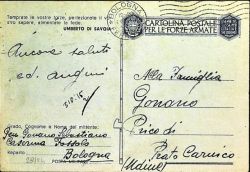 Temprate le vostre forze, perfezionate il vostro sapere, alimentate la fede.
UMBERTO DI SAVOIA
CARTOLINA POSTALE
PER LE FORZE ARMATE
BOLOGNA
Ancora saluti
ed auguri
Alla Famiglia
Gonano
Prico di
Prato Carnico
(Udine)
Grado, Cognome e Nome del mittente:
Gonano Sebastiano
Caserma
Reparto
Bologna